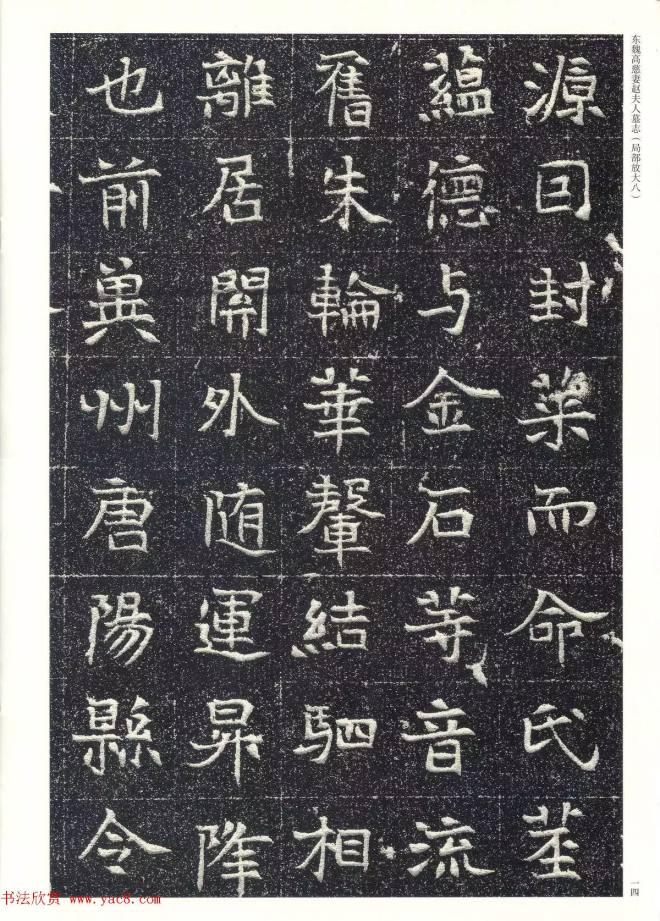 东魏高慈妻赵夫人墓志（局部放大八）
源囙封菜而命氏
蘊德与金石等音流
舊朱輪華輦結駟相
離居開外随運昇降
也前兾州唐陽縣令
一四
书法欣赏 www.yac8.com